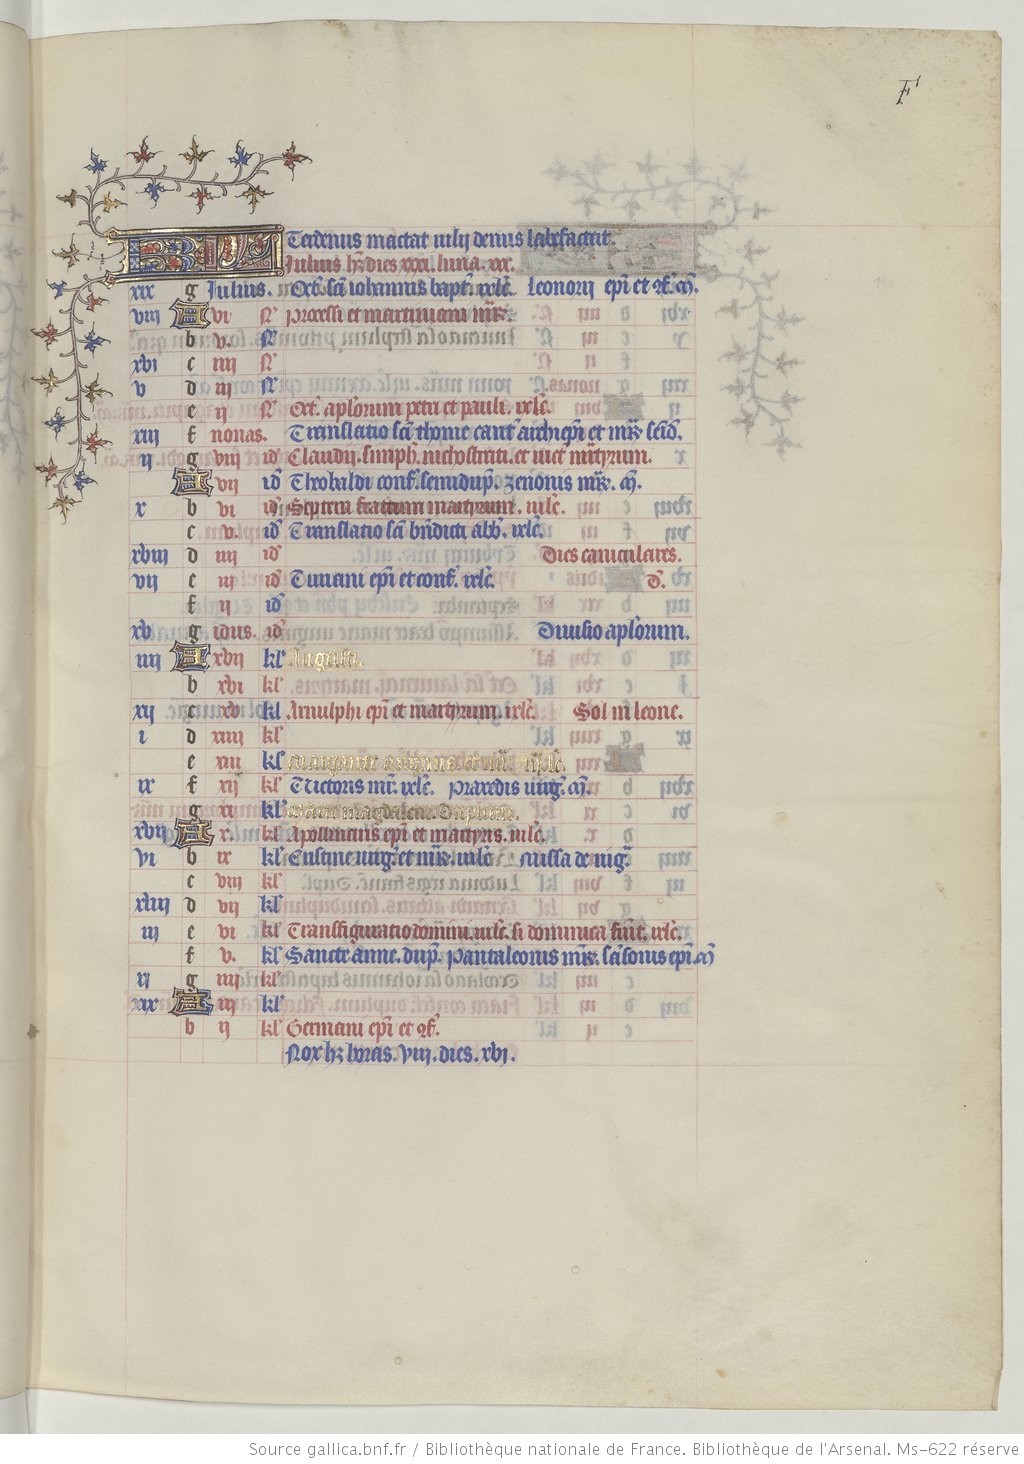 F
KL Terdenus mactat iulii denus labefactat.
Iulius hz dies xxxi. luna. xxx.
xix g Iulius. Oct. sci iohannis bapt. ixlc. Leonorii epi et 9f. m.
viii A vi N Processi et martiniani mr.
b v. N
xvi c iiii N
v d iii N
e ii N Oct. aplorum petri et pauli. ixlc.
xiii f nonas. Translatio sci thome cant archiepi et mr
ii g viii id Claudii. simph. nichostrati. et vict martyrum.
A vii id Theobaldi conf. semidup. Zenonis mr. m.
x b vi id Septem fratrum martyrum. iiilc.
c v. id Translatio sci bndicti abb. ixlc.
xviii d iiii id Dies caniculares.
vii e iii id Turiani epi et conf. ixlc. D.
f ii id
xv g idus. id Divisio aplorum.
iiii A xvii kl Augusti.
b xvi kl
xii c xv kl Arnulphi epi et martyrum. ixlc. Sol in leone.
i d xiiii kl
e xiii kl Margarite virginis et mr. ixlc.
ix f xii kl Victoris mr. ixlc. Praxedis virg. m.
g xi kl Marie magdalene. Duplum.
xvii A x. kl Apollinaris epi et martyris. iiilc.
vi b ix kl Cristine virg. et mr. iiilc. Missa de vig.
c viii kl
xiiii d vii kl
iii e vi kl Transfiguratio domini. iiilc. si dominica fuit. ixlc.
f v. kl Sancte anne. dup. Pantaleonis mr. sansonis epi. m
ii g iiii kl
xix A iii kl
b ii kl Germani epi et 9f.
Nox hz horas. viii. dies. xvi.
Source gallica.bnf.fr / Bibliothèque nationale de France. Bibliothèque de l'Arsenal. Ms-622 réserve